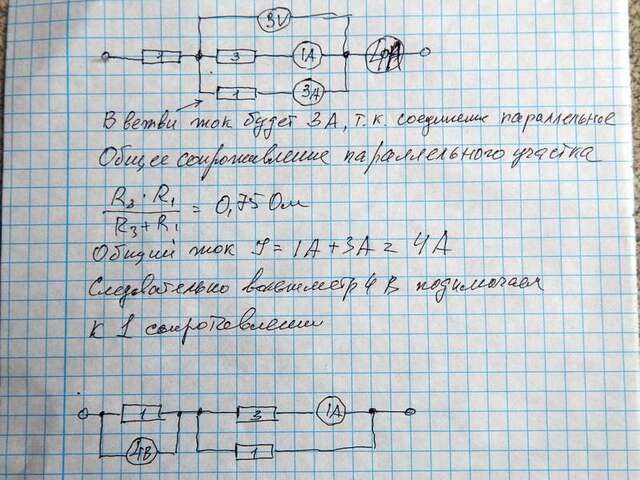 3V
1 3 1A
1 3A
В ветви ток будет 3А, т.к соединение параллельное
Общее сопротивление параллельного участка
R3 · R1 / R3 + R1 = 0,75 Ом
Общий ток J = 1А + 3А = 4А
Следовательно вольтметр 4 В подключаем
к 1 сопротивлению
1 3 1A
4В 1